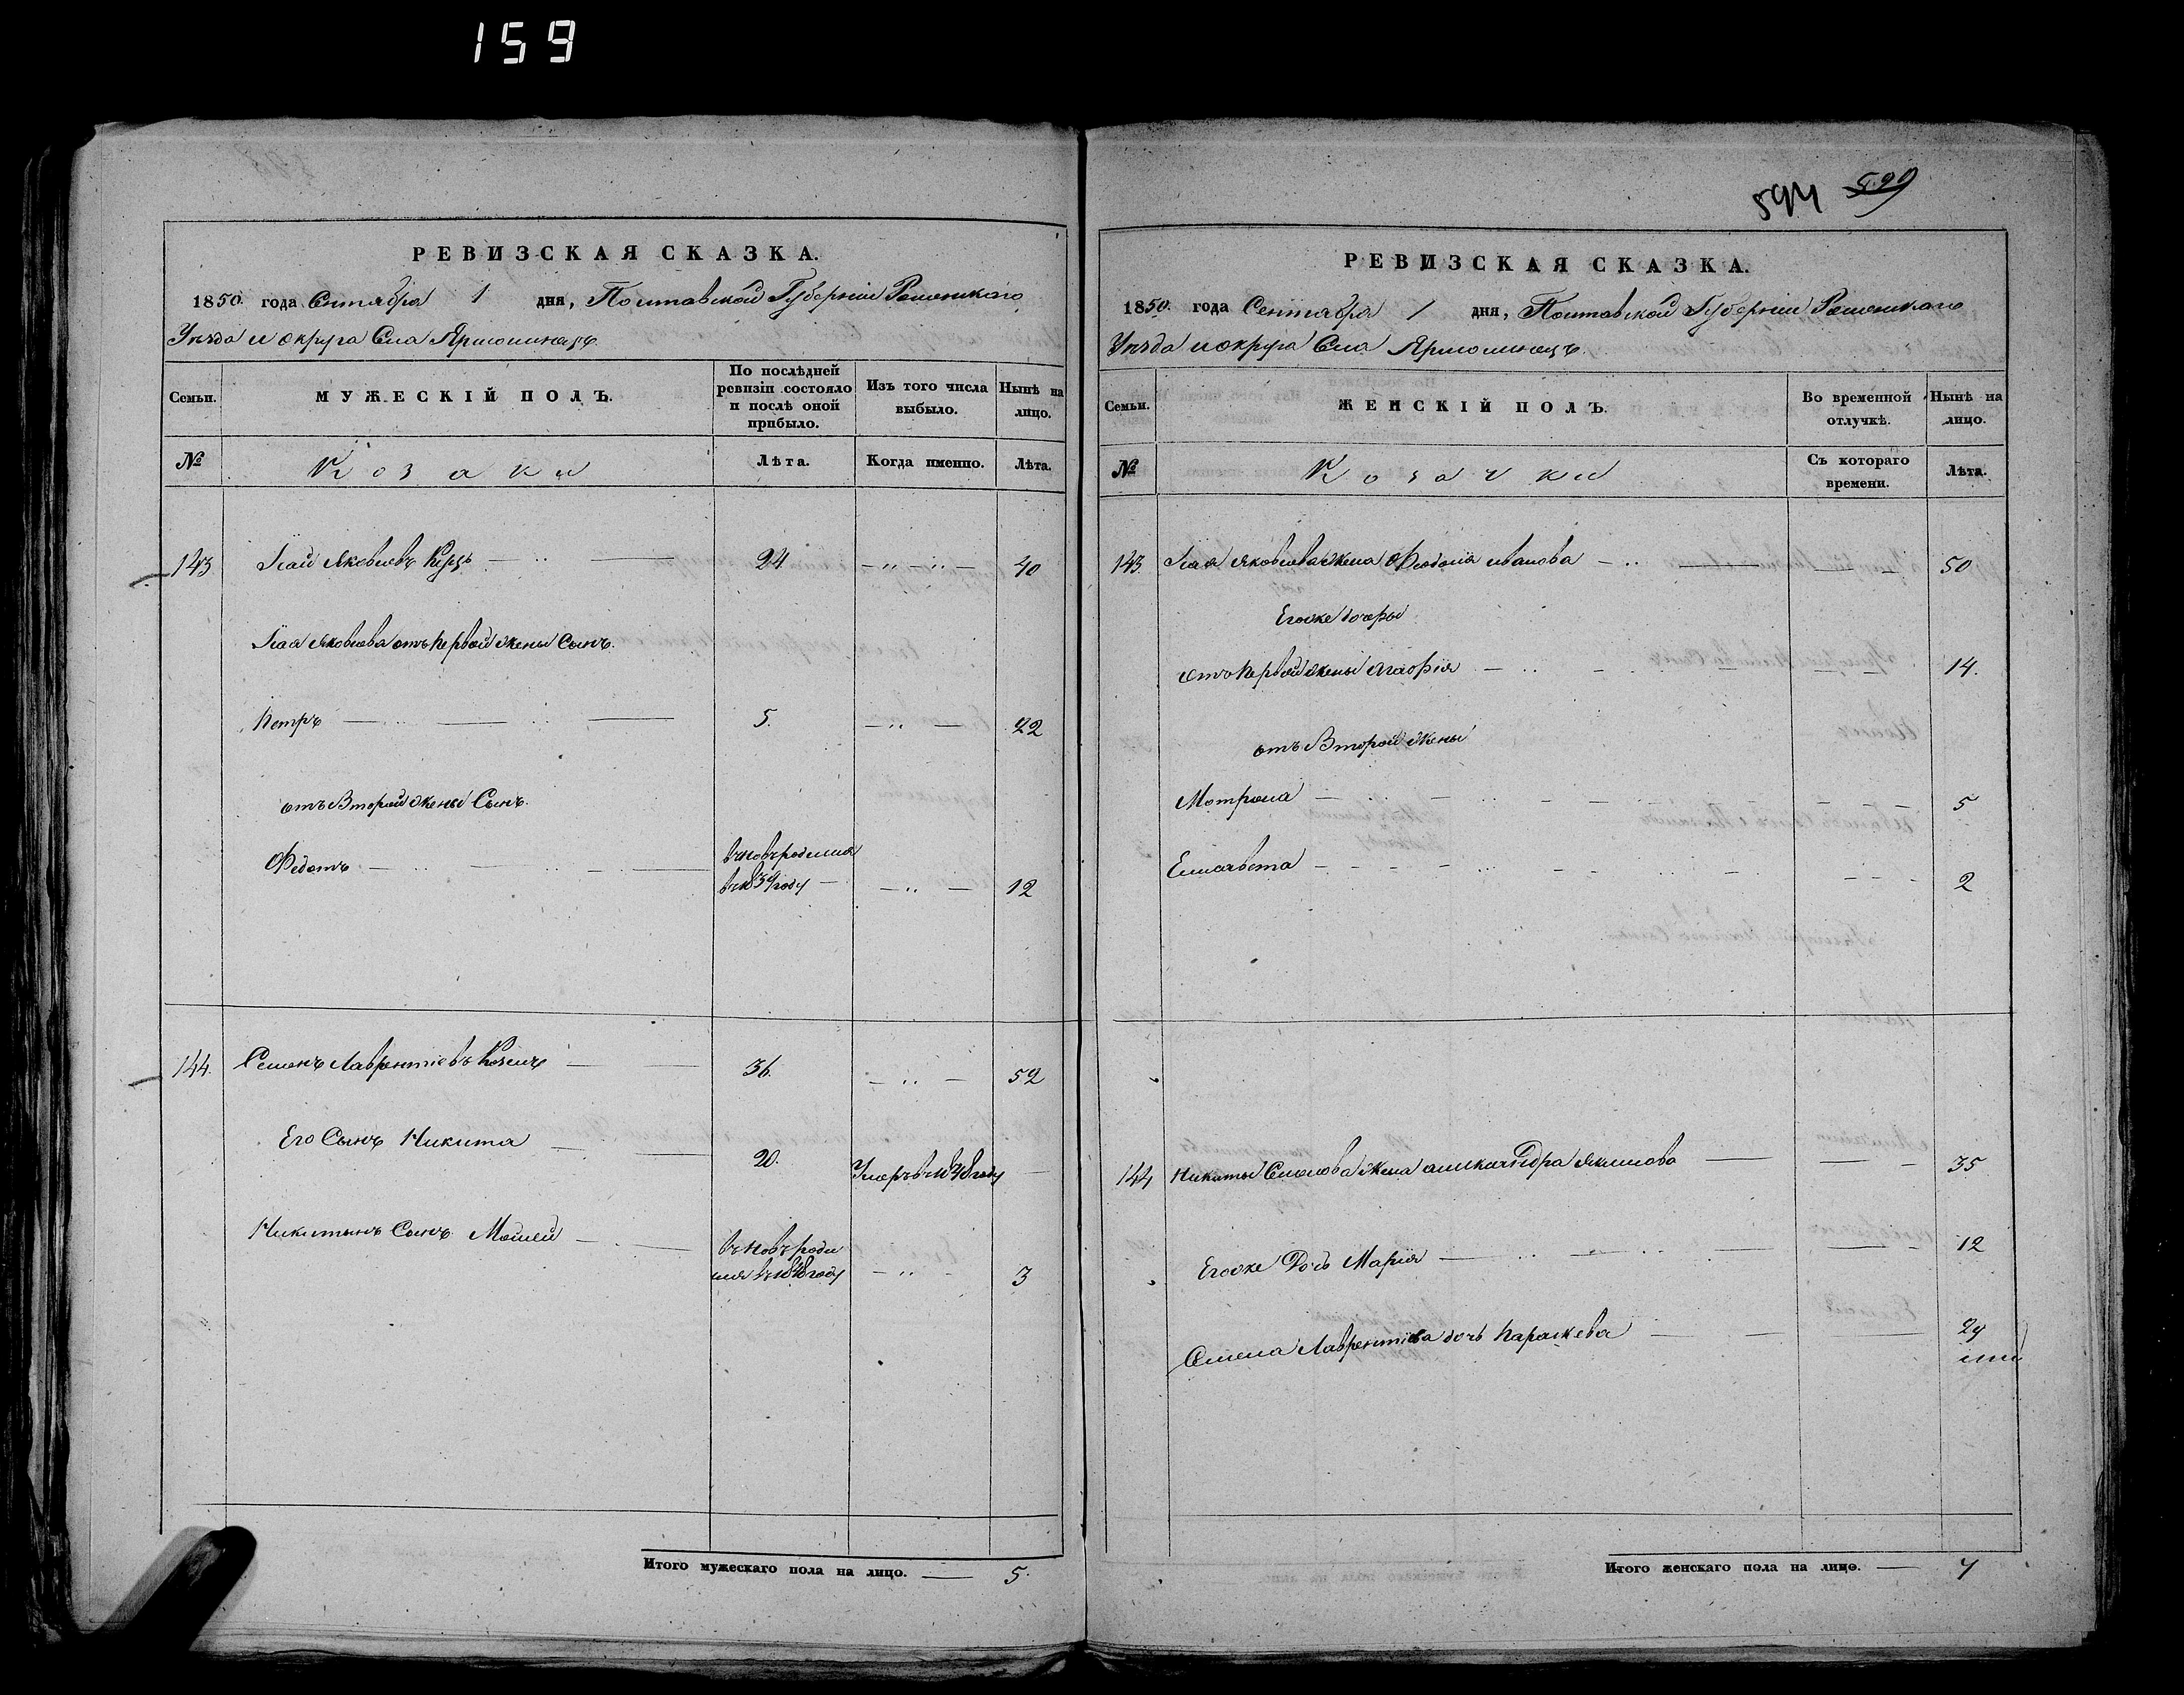 159
РЕВИЗСКАЯ СКАЗКА.
1850. года Сентября 1 дня, Полтавской Губерніи Роменскаго
Уѣзда и округа Села Ярмолинецъ
Семьи.
МУЖЕСКІЙ ПОЛЪ.
По послѣдней ревизіи состояло и послѣ оной прибыло.
Изъ того числа выбыло.
Нынѣ на лицо.
№
Козаки
Лѣта.
Когда именно.
Лѣта.
143 Яковлевъ 24 40
Яковлева отъ первой жены Сынъ
Петръ 5. 22
отъ Второй жены Сынъ
Федотъ
вновь родился
въ 1839 году 12
144. Семенъ Лаврентіевъ 36. 52
Его Сынъ Никита 20. Умеръ в 1848 году
Никитинъ Сынъ Мойсей
вновь роди
лся въ 1848 году 3
Итого мужескаго пола на лицо. 5.
594 599
РЕВИЗСКАЯ СКАЗКА.
1850. года Сентября 1 дня, Полтавской Губерніи Роменскаго
Уѣзда и округа Села Ярмолинецъ
Семьи.
ЖЕНСКІЙ ПОЛЪ.
Во временной отлучкѣ.
Нынѣ на лицо.
№
Козачки
Съ котораго времени.
Лѣта.
143. Яковлева жена Феодосія иванова 50
Егоже дочеры
отъ первой жены Агафія 14.
отъ Второй жены
Мотрона 5
Елисавета 2
144 Никиты Семенова жена Якимова 35
Егоже Дочь Марія 12
Семена Лаврентіева дочь Параскева 29
Итого женскаго пола на лицо. 7